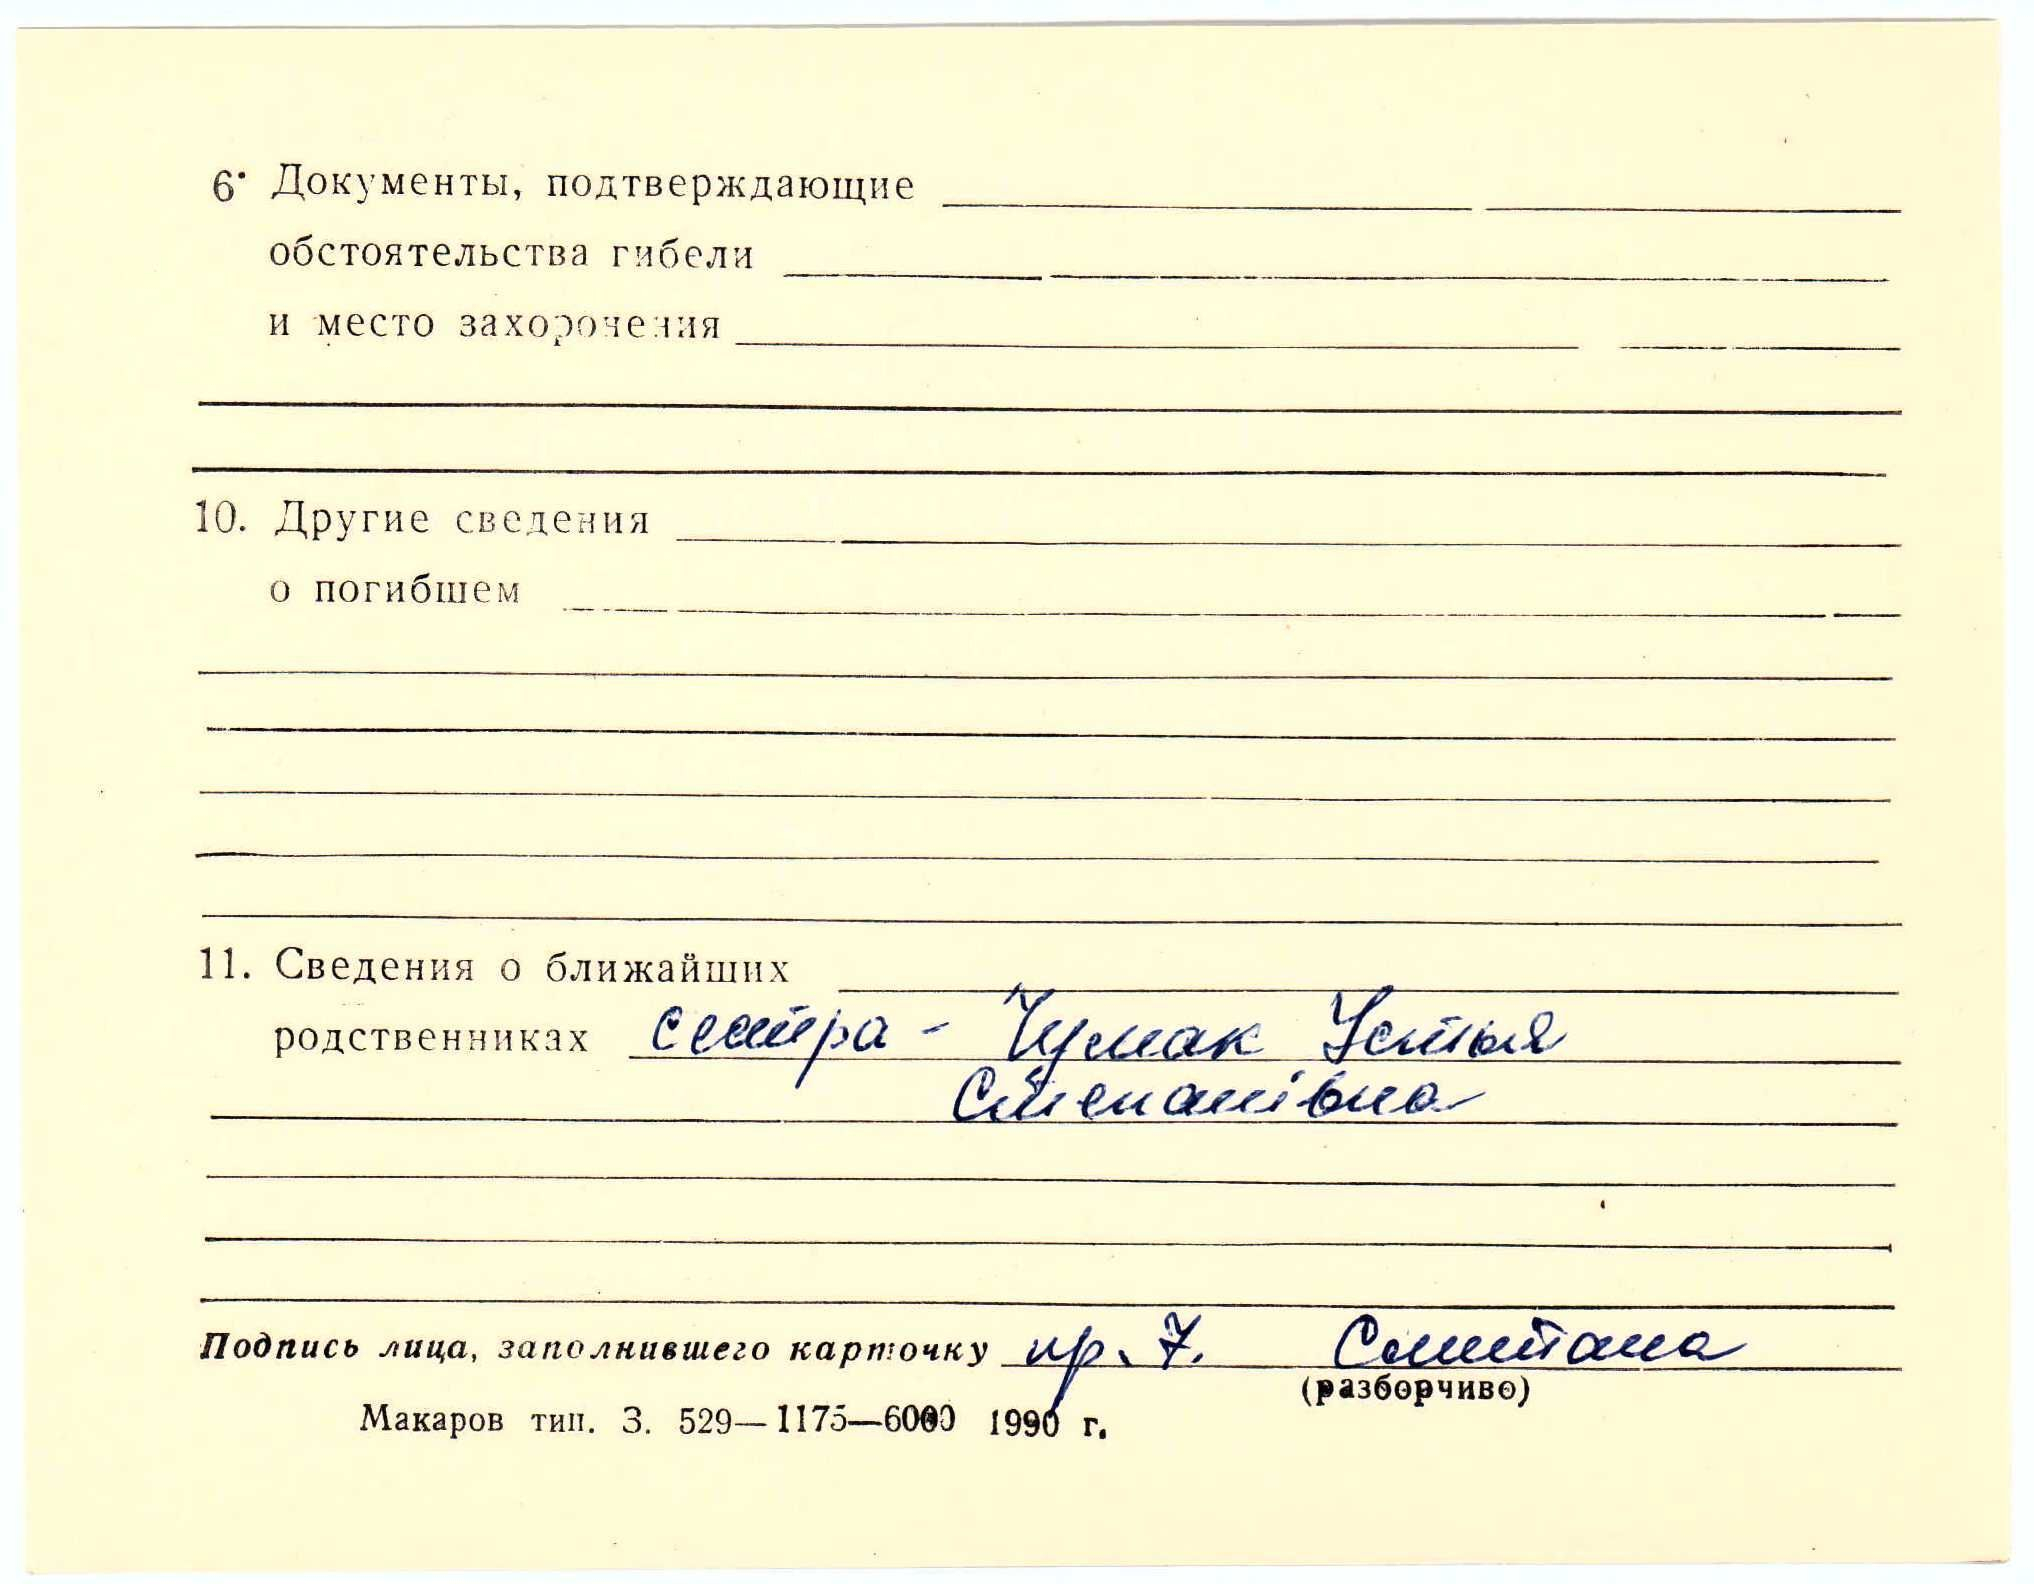 6. Документы, подтверждающие
обстоятельства гибели
и место захоронения
10. Другие сведения
о погибшем
11. Сведения о ближайших
родственниках сестра - Чумак Устья
Степанівна
Подпись лица, заполнившего карточку пр. 7. Сметана
(разборчиво)
Макаров тип. З. 529—1175—6000 1990 г.